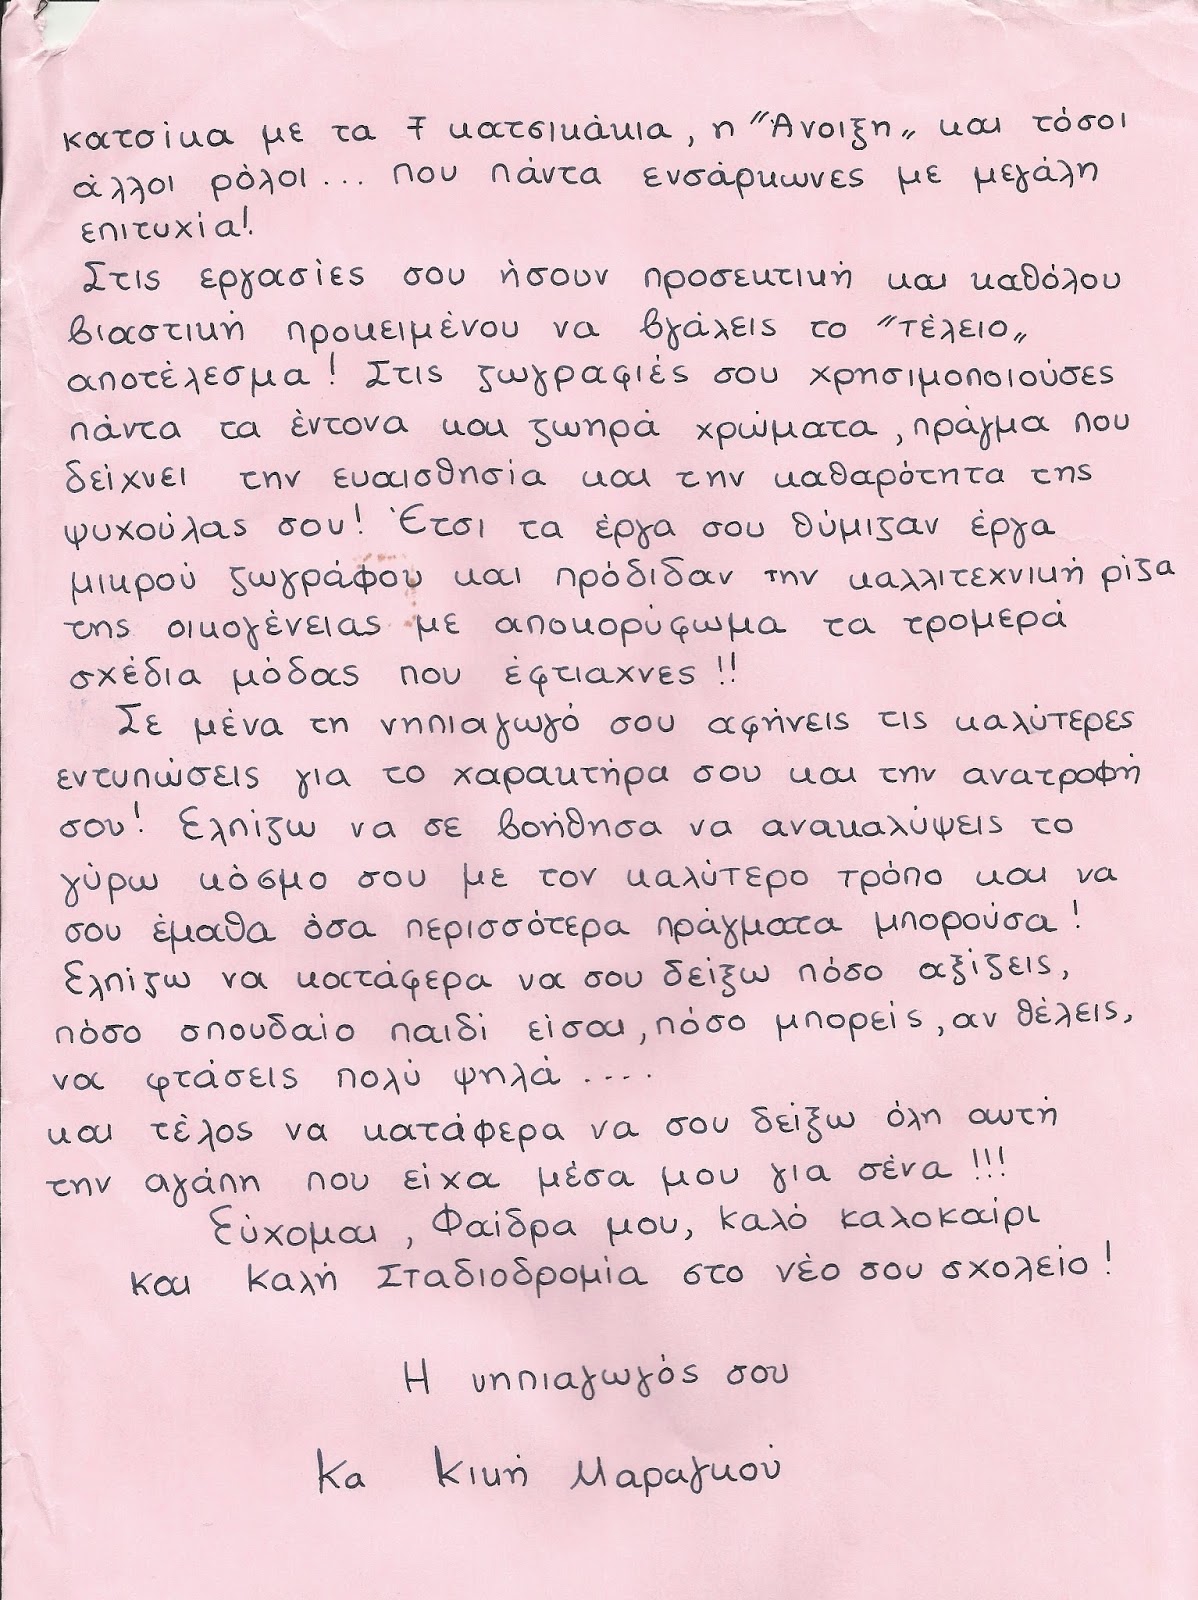 κατσίκα με τα 7 κατσικάκια, η "Άνοιξη„ και τόσοι
άλλοι ρόλοι... που πάντα ενσάρκωνες με μεγάλη
επιτυχία!
Στις εργασίες σου ήσουν προσεκτική και καθόλου
βιαστική προκειμένου να βγάλεις το "τέλειο„
αποτέλεσμα! Στις ζωγραφιές σου χρησιμοποιούσες
πάντα τα έντονα και ζωηρά χρώματα, πράγμα που
δείχνει την ευαισθησία και την καθαρότητα της
ψυχούλας σου! Έτσι τα έργα σου θύμιζαν έργα
μικρού ζωγράφου και πρόδιδαν την καλλιτεχνική ρίζα
της οικογένειας με αποκορύφωμα τα τρομερά
σχέδια μόδας που έφτιαχνες!!
Σε μένα τη νηπιαγωγό σου αφήνεις τις καλύτερες
εντυπώσεις για το χαρακτήρα σου και την ανατροφή
σου! Ελπίζω να σε βοήθησα να ανακαλύψεις το
γύρω κόσμο σου με τον καλύτερο τρόπο και να
σου έμαθα όσα περισσότερα πράγματα μπορούσα!
Ελπίζω να κατάφερα να σου δείξω πόσο αξίζεις,
πόσο σπουδαίο παιδί είσαι, πόσο μπορείς, αν θέλεις,
να φτάσεις πολύ ψηλά....
και τέλος να κατάφερα να σου δείξω όλη αυτή
την αγάπη που είχα μέσα μου για σένα!!!
Εύχομαι, Φαίδρα μου, καλό καλοκαίρι
και καλή Σταδιοδρομία στο νέο σου σχολείο!
Η νηπιαγωγός σου
Κα Κική Μαραγκού